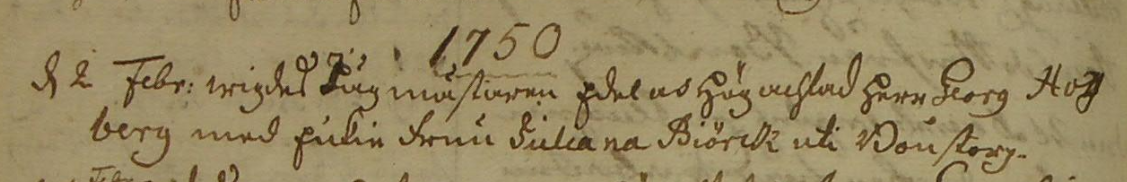 1750
d 2 Febr: wigdes Tygmästaren Edel och Högachtad Herr Georg Hog
berg med Enkie Fruu Juliana Biörck uti Boustorp.